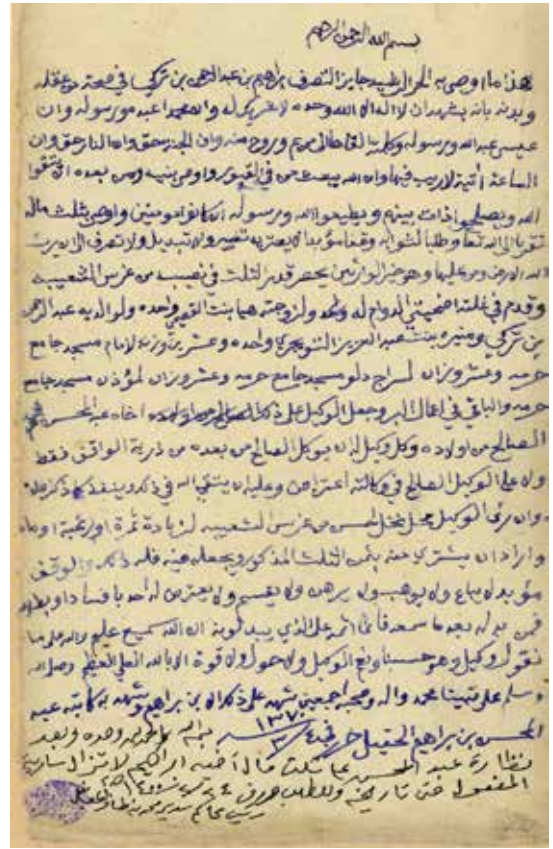 بسم الله الرحمن الرحيم
هذا ما اوصى به الحر الرشيد جايز التصرف ابراهيم بن عبدالرحمن بن تركي في صحة من عقله
وبدنه بانه يشهد ان لا اله الا الله وحده لا شريك له وان محمدا عبده ورسوله وان
عيسى عبد الله ورسوله وكلمته القاها الى مريم وروح منه وان الجنة حق وان النار حق وان
الساعة آتية لا ريب فيها وان الله يبعث من في القبور واوصى بنيه ومن بعده ان يتقوا
الله ويصلحوا ذات بينهم ويطيعوا الله ورسوله ان كانوا مومنين واوصى بثلث ماله
تقربا الى الله تعا وطلبا لثوابه وقفا مؤبدا لا يعتريه تغيير ولا تبديل ولا تصرف الى ان يرث
الله الارض ومن عليها وهو خير الوارثين يحصر قدر الثلث في نصيبه من غرس الشعيبه
وقدم في غلته اضحيتين الدوام له وحده ولزوجته هيا بنت واحده ولوالديه عبدالرحمن
بن تركي ومنيره بنت عبدالعزيز التويجري واحده وعشرين وزنه لامام مسجد جامع
حرمه وعشر وزان لسراج ودلو مسجد جامع حرمه وعشر وزان لمؤذن مسجد جامع
حرمه والباقي في اعمال البر وجعل الوكيل على ذلك اخاه عبدالمحسن ثم
الصالح من اولاده وكل وكيل له ان يوكل الصالح من بعده من ذرية الواقف فقط
ولا على الوكيل الصالح في وكالته اعتراض وعليه ان يتقي الله في ذلك وينفذ كما ذكر
وان رأى الوكيل محل نخل احسن من غرس الشعيبه لزيادة ثمرة او رغبة او ماء
واراد ان يشتري منه بثمن الثلث المذكور ويجعله فيه فله ذلك والوقف
مؤبد لا يباع ولا يوهب ولا يرهن ولا يقسم ولا يعترض له احد بافساد او بطلان
فمن بدله بعد ما سمعه فانما اثمه على الذي يبدلونه ان الله سميع عليم والله على ما
نقول وكيل وهو حسبنا ونعم الوكيل ولا حول ولا قوة الا بالله العلي العظيم وصلى الله
وسلم على نبينا محمد واله وصحبه اجمعين شهد على ذلك بن براهيم وشهد به كاتبه عبد
المحسن بن براهيم الحقيل حرر في ٤/٣/١٣٧٠
الحمد لله وحده وبعد
نظارة عبدالمحسن على ثلث مال أخيه ابراهيم لا تزال سارية
المفعول حتى تاريخه وللطلب حرر في
رئيس محاكم سدير